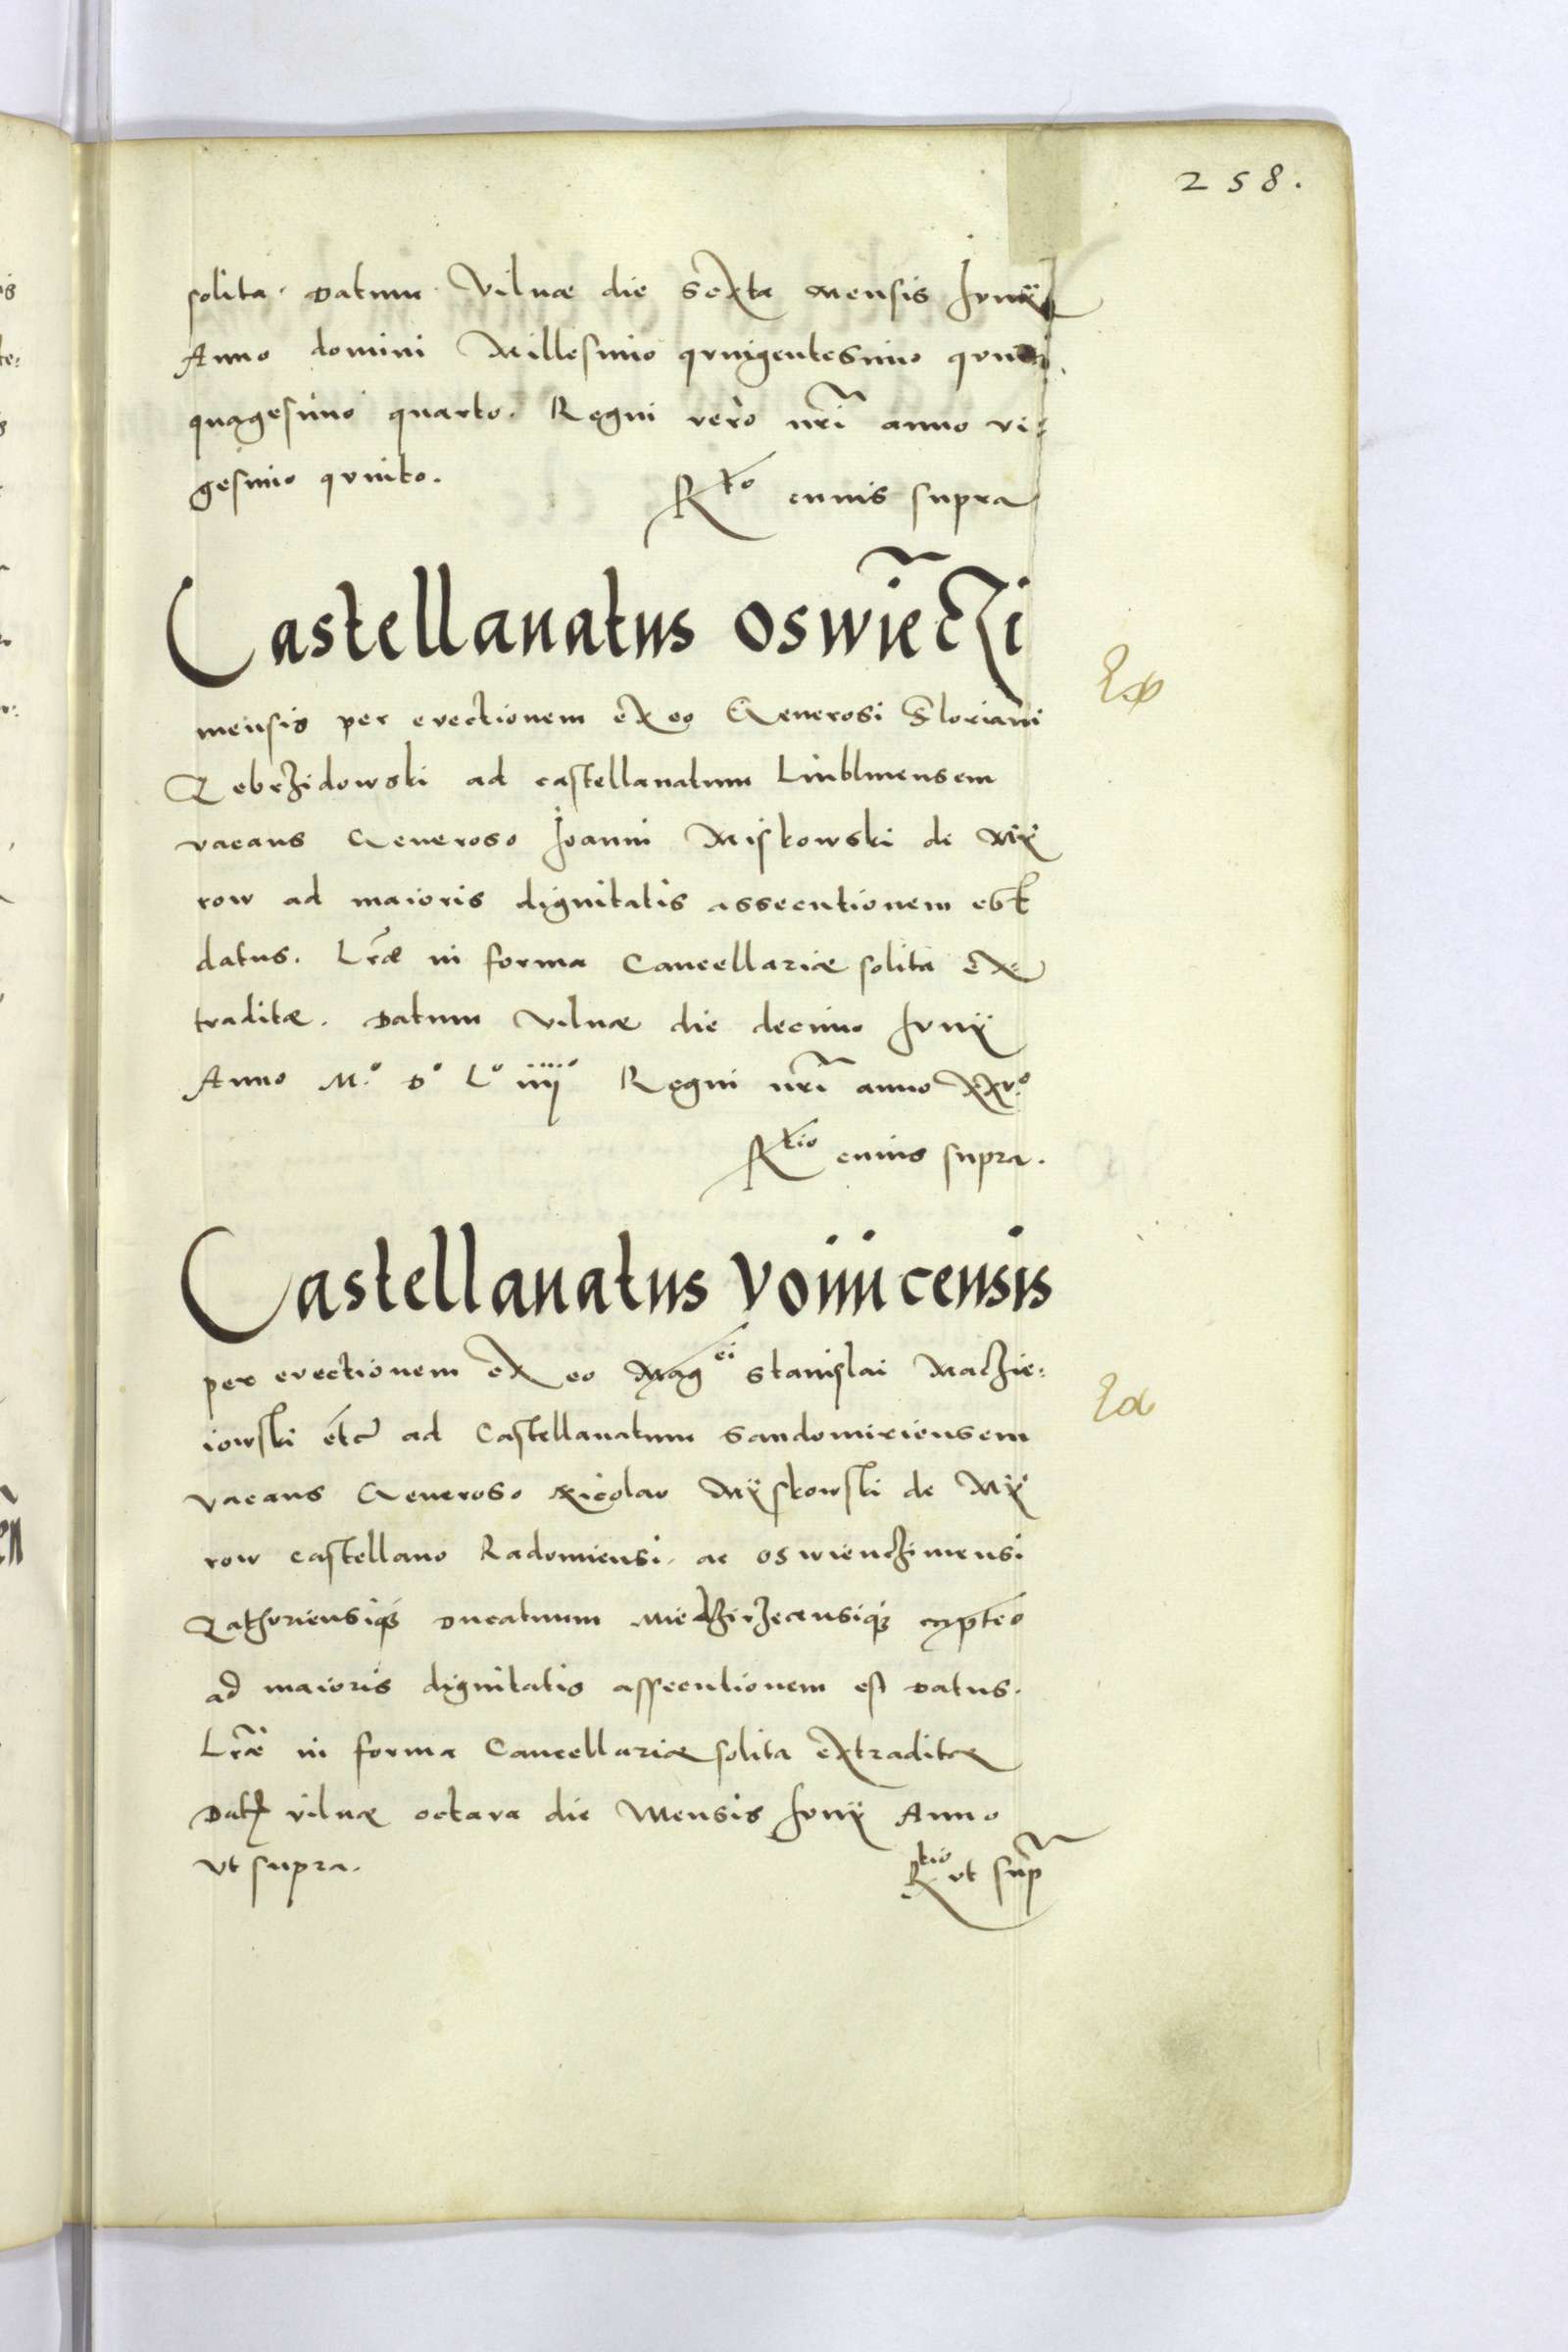 258.
solita. Datum Vilnæ die sexta mensis Junÿ
Anno domini Millesimo quingentesimo quin
quagesimo quarto. Regni vero nrĩ anno vi-
gesimo quinto.
R^to cuius supra
Castellanatus Oswiẽczi
mensis per evectionem ex eo Generosi Floriani
Zebrzidowski ad castellanatum Lublinensem
vacans Generoso Joanni Miskowski de Mÿ
row ad maioris dignitatis assecutionem est
datus. Lræ in forma Cancellariæ solita ex-
traditæ. Datum Vilnæ die decimo Junÿ
Anno M.º Dº Lº iiijº Regni nrĩ anno xxvº
R^tio cuius supra.
Castellanatus Voinicensis
per evectionem ex eo Mag^ci Stanislai Maczie:
iowski etc ad Castellanatum Sandomiriensem
vacans Generoso Nicolao Mÿskowski de Mÿ
row castellano Radomiensi ac Oswienczimensi
Zathoriensiq; Ducatuum Miedzirzecensiq; cãpteo
ad maioris dignitatis assecutionem est datus.
Lræ in forma Cancellariæ solita extraditæ
Dat Vilnæ octava die Mensis Junÿ Anno
Vt supra.
R^tio vt sup